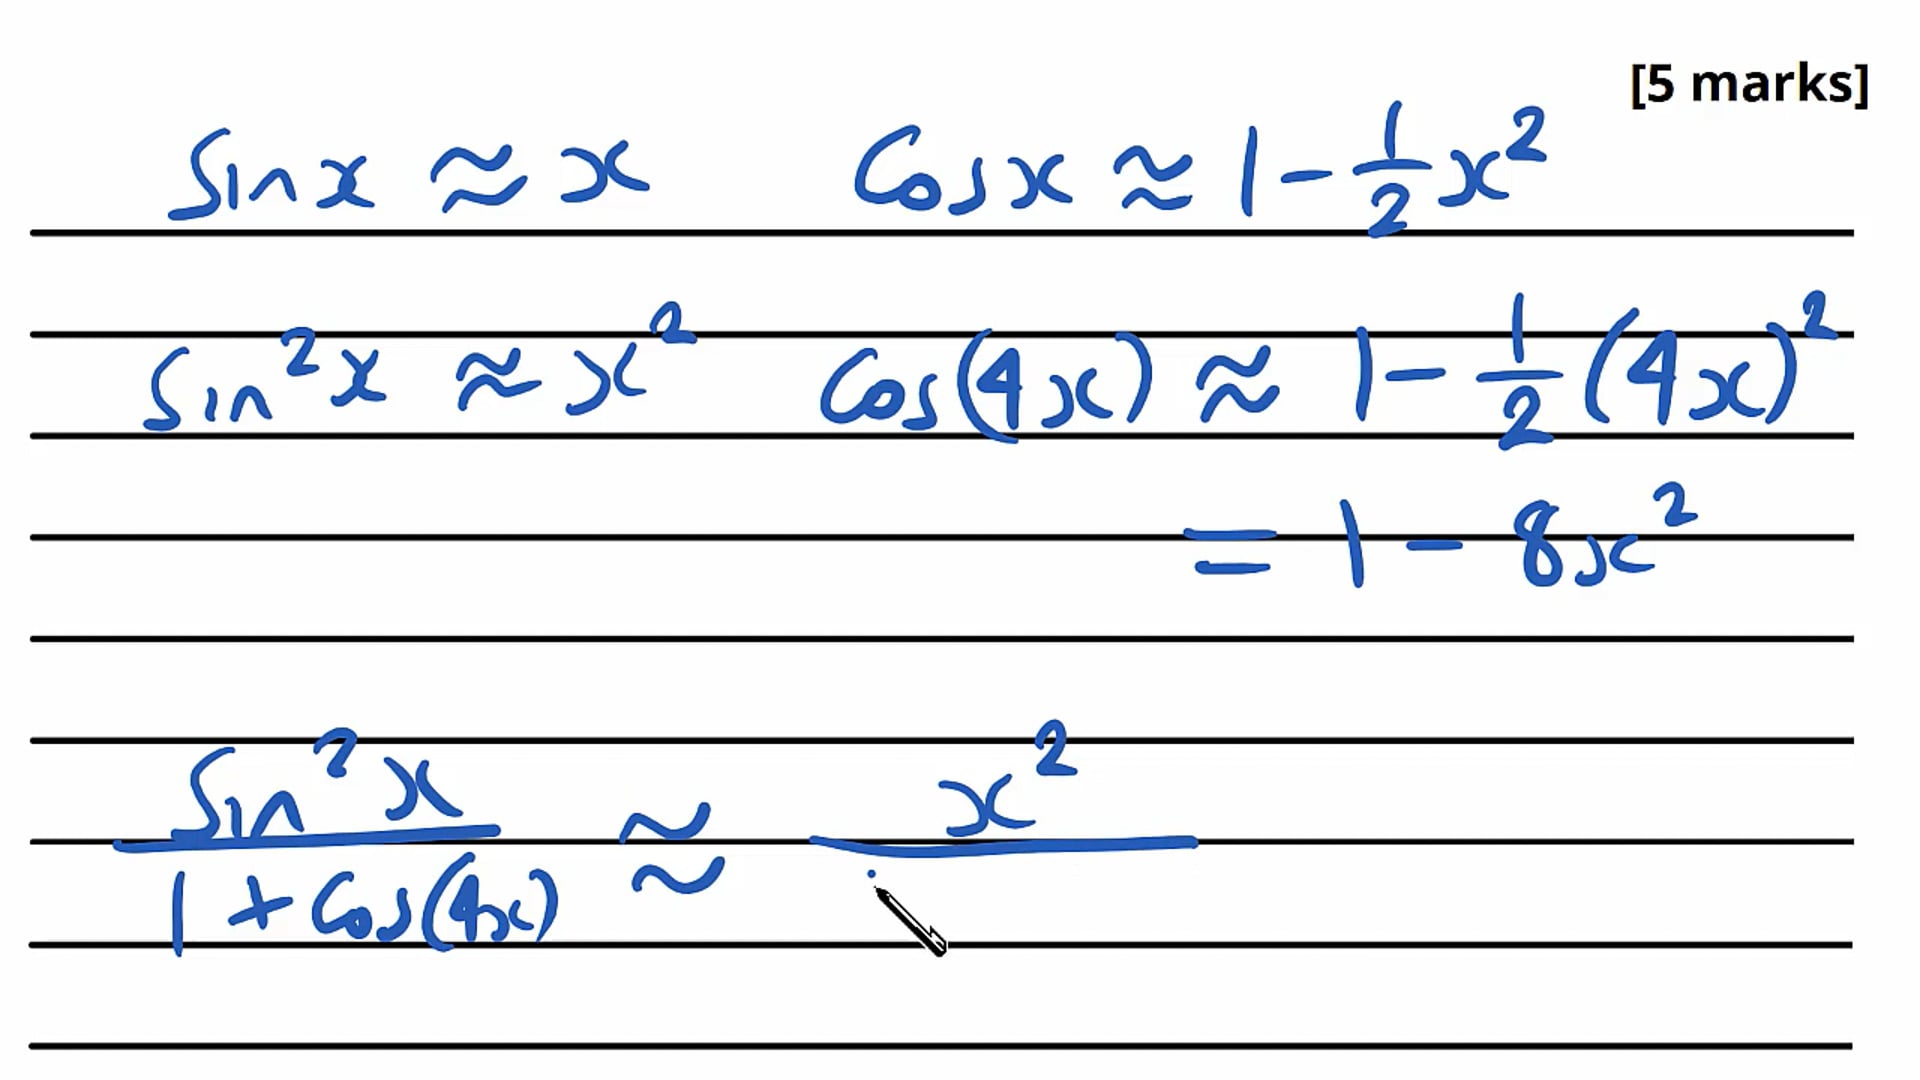 [5 marks]
Sin x ≈ x    Cos x ≈ 1 - 1/2 x²
Sin² x ≈ x²    Cos(4x) ≈ 1 - 1/2 (4x)²
= 1 - 8x²
Sin² x / 1 + Cos(4x) ≈ x² /